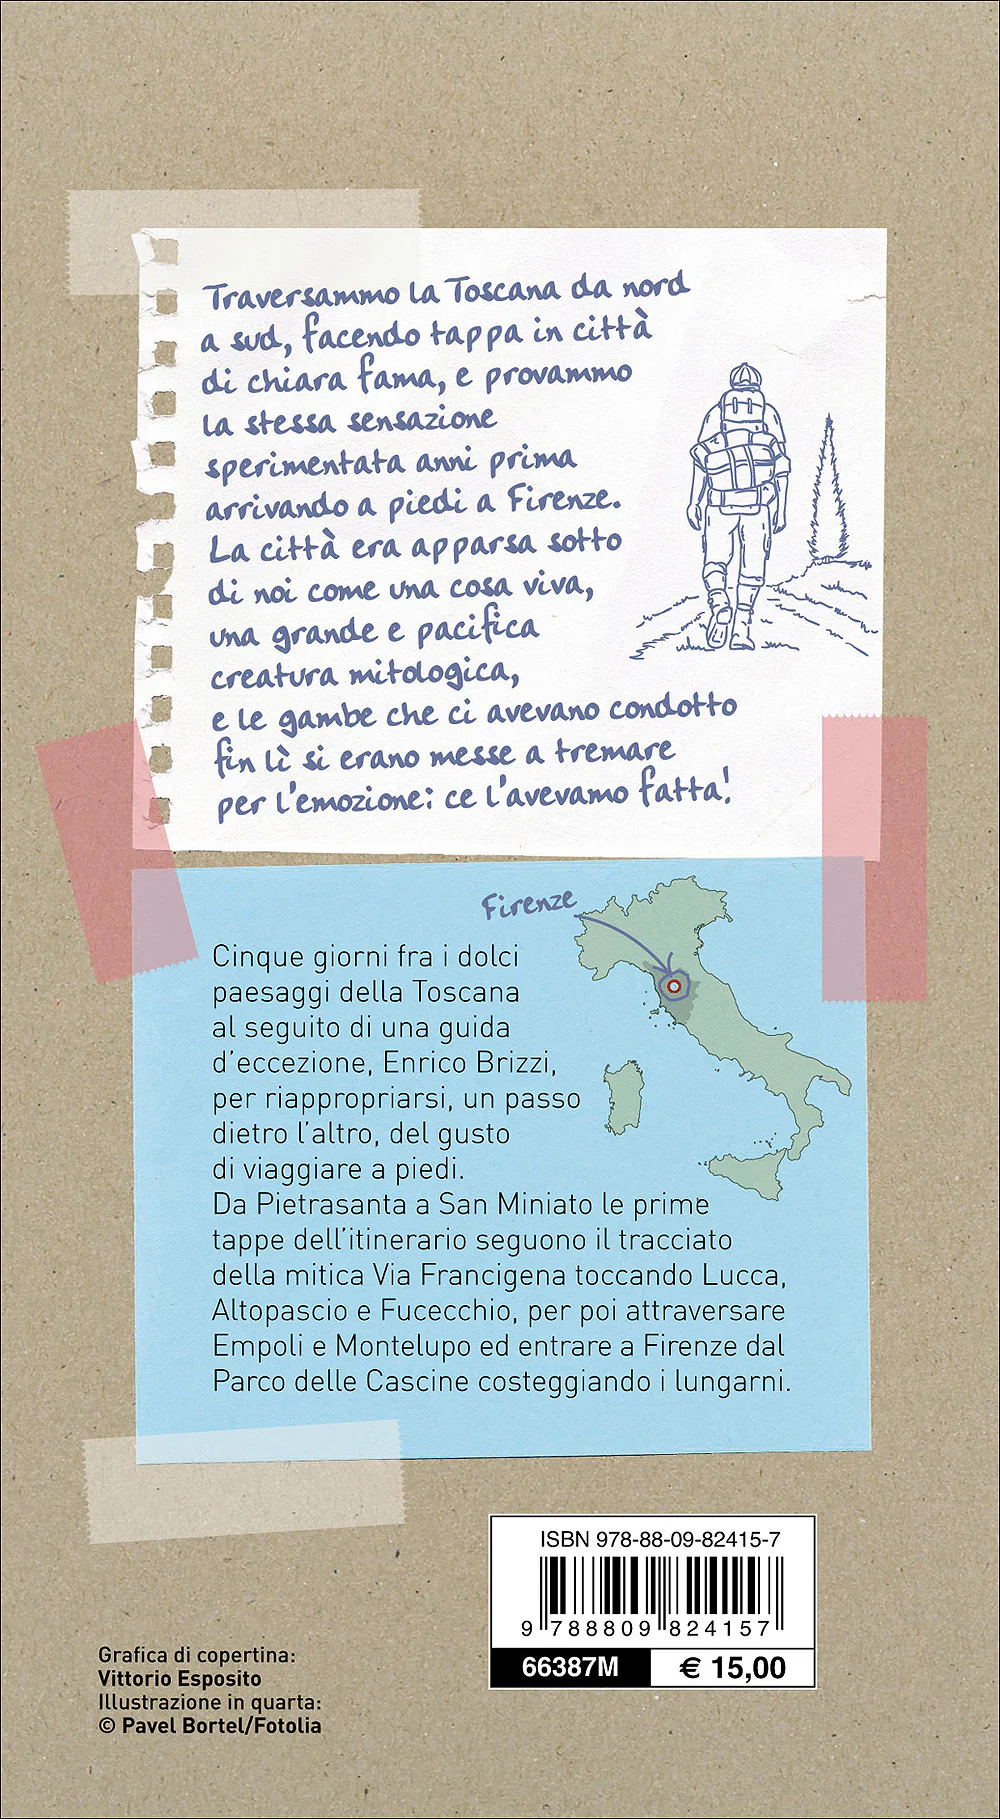 Traversammo la Toscana da nord
a sud, facendo tappa in città
di chiara fama, e provammo
la stessa sensazione
sperimentata anni prima
arrivando a piedi a Firenze.
La città era apparsa sotto
di noi come una cosa viva,
una grande e pacifica
creatura mitologica,
e le gambe che ci avevano condotto
fin lì si erano messe a tremare
per l'emozione: ce l'avevamo fatta!
Firenze
Cinque giorni fra i dolci
paesaggi della Toscana
al seguito di una guida
d'eccezione, Enrico Brizzi,
per riappropriarsi, un passo
dietro l'altro, del gusto
di viaggiare a piedi.
Da Pietrasanta a San Miniato le prime
tappe dell'itinerario seguono il tracciato
della mitica Via Francigena toccando Lucca,
Altopascio e Fucecchio, per poi attraversare
Empoli e Montelupo ed entrare a Firenze dal
Parco delle Cascine costeggiando i lungarni.
ISBN 978-88-09-82415-7
9 788809 824157
66387M € 15,00
Grafica di copertina:
Vittorio Esposito
Illustrazione in quarta:
© Pavel Bortel/Fotolia